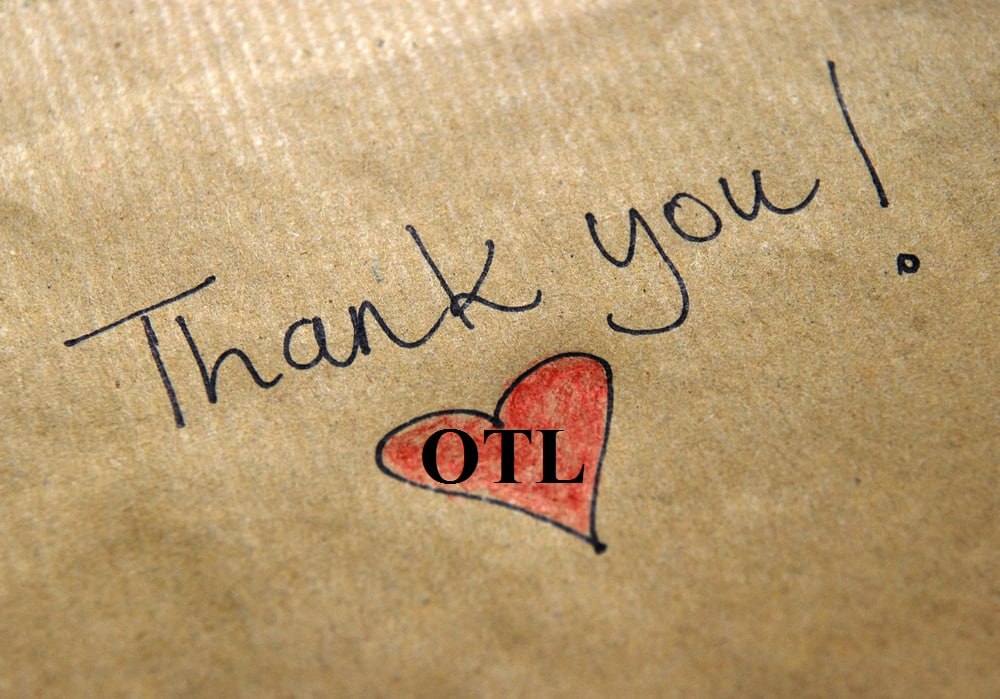 Thank you!
OTL